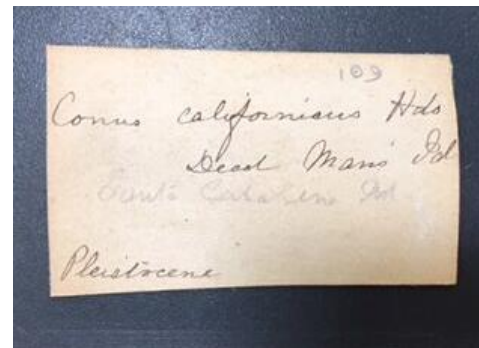 109
Conus californicus Hds
Dead Mans Id
Santa Catalina Id
Pleistocene